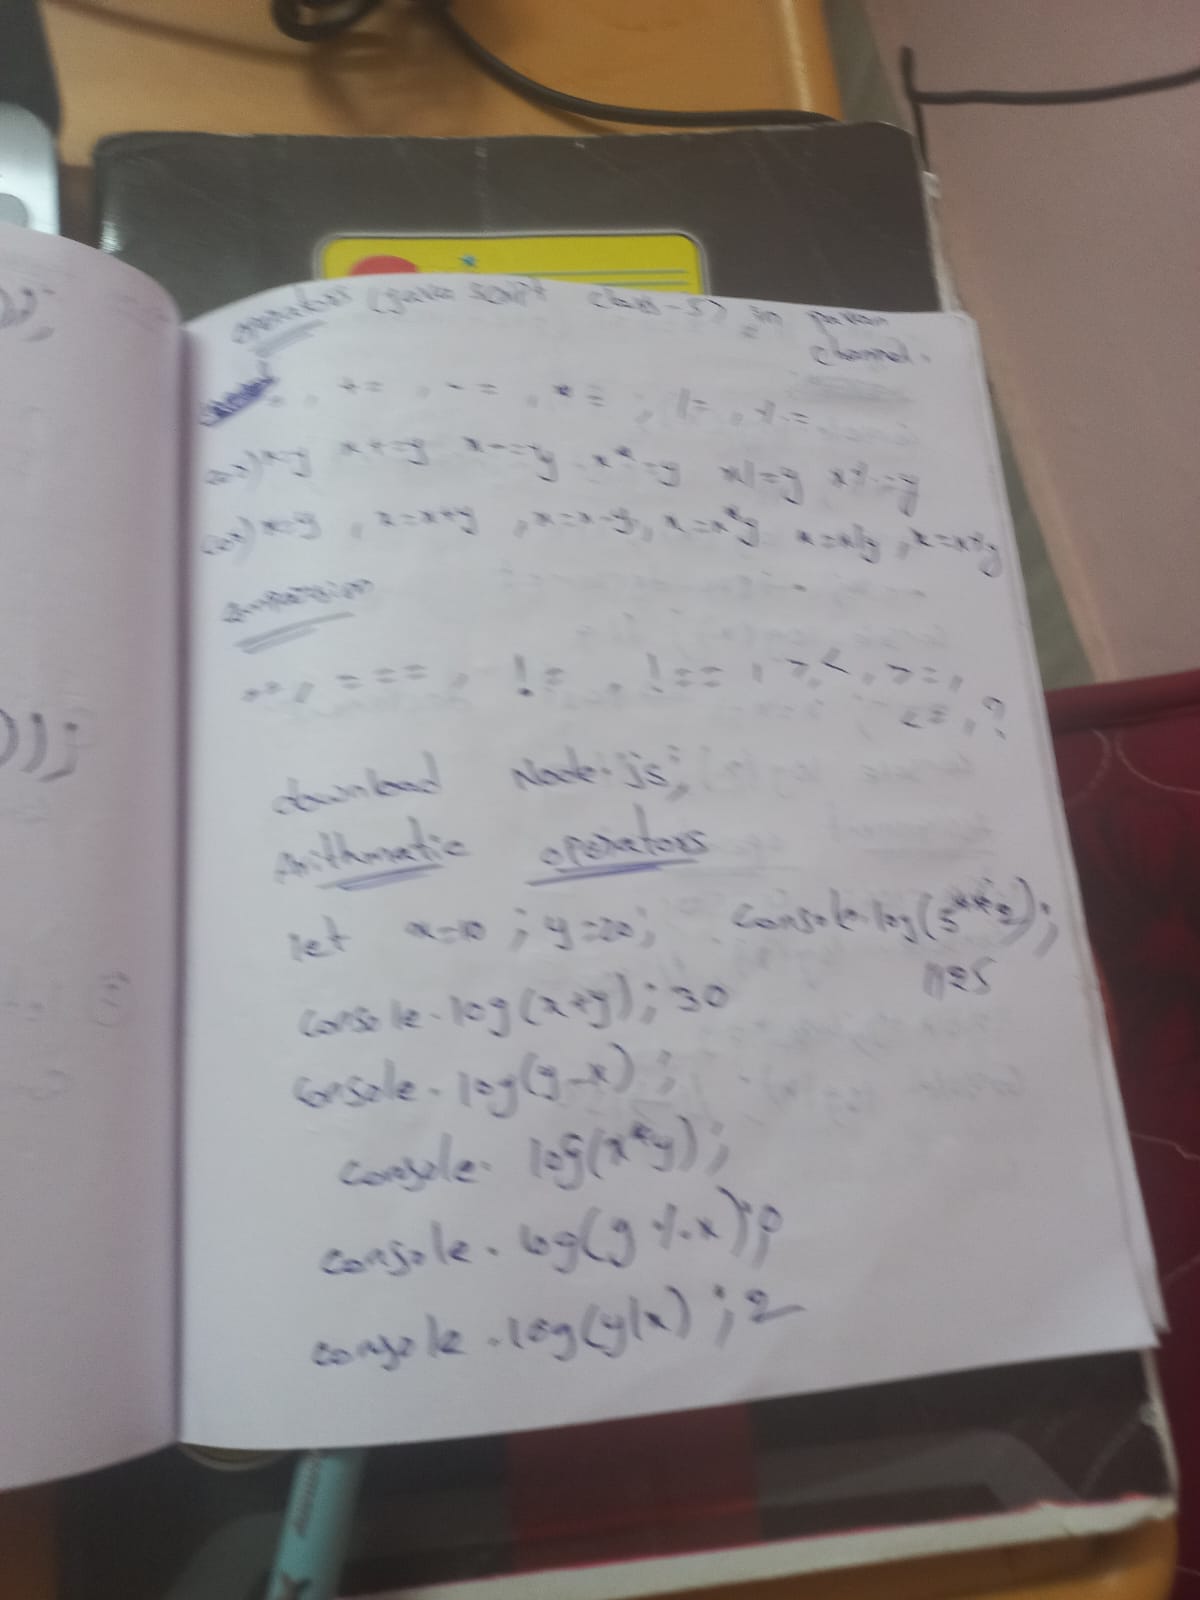 operators (java script class-5) in pavan
channel.
=, +=, -=, *=, /=, %=
(ex) x=y x+=y x-=y x*=y x/=y x%=y
(ex) x=y, x=x+y, x=x-y, x=x*y x=x/y, x=x%y
==, ===, !=, !==, >, <, >=,
<=, ?
download Node.js;
Arithmatic operators
let x=10; y=20; console.log(5**2);
//25
console.log(x+y); 30
console.log(y-x);
console.log(x*y);
console.log(y%x);0
console.log(y/x);2